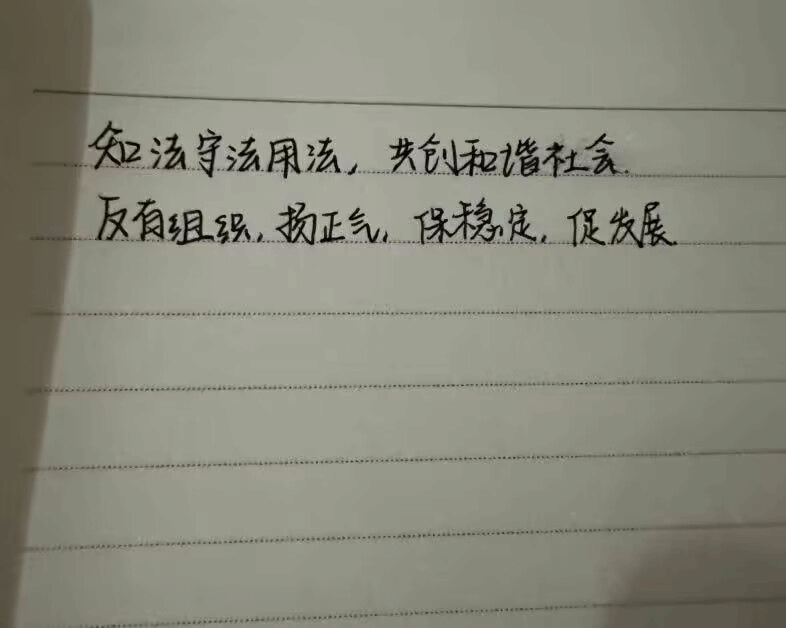 知法守法用法，共创和谐社会.
反有组织，扬正气，保稳定，促发展.